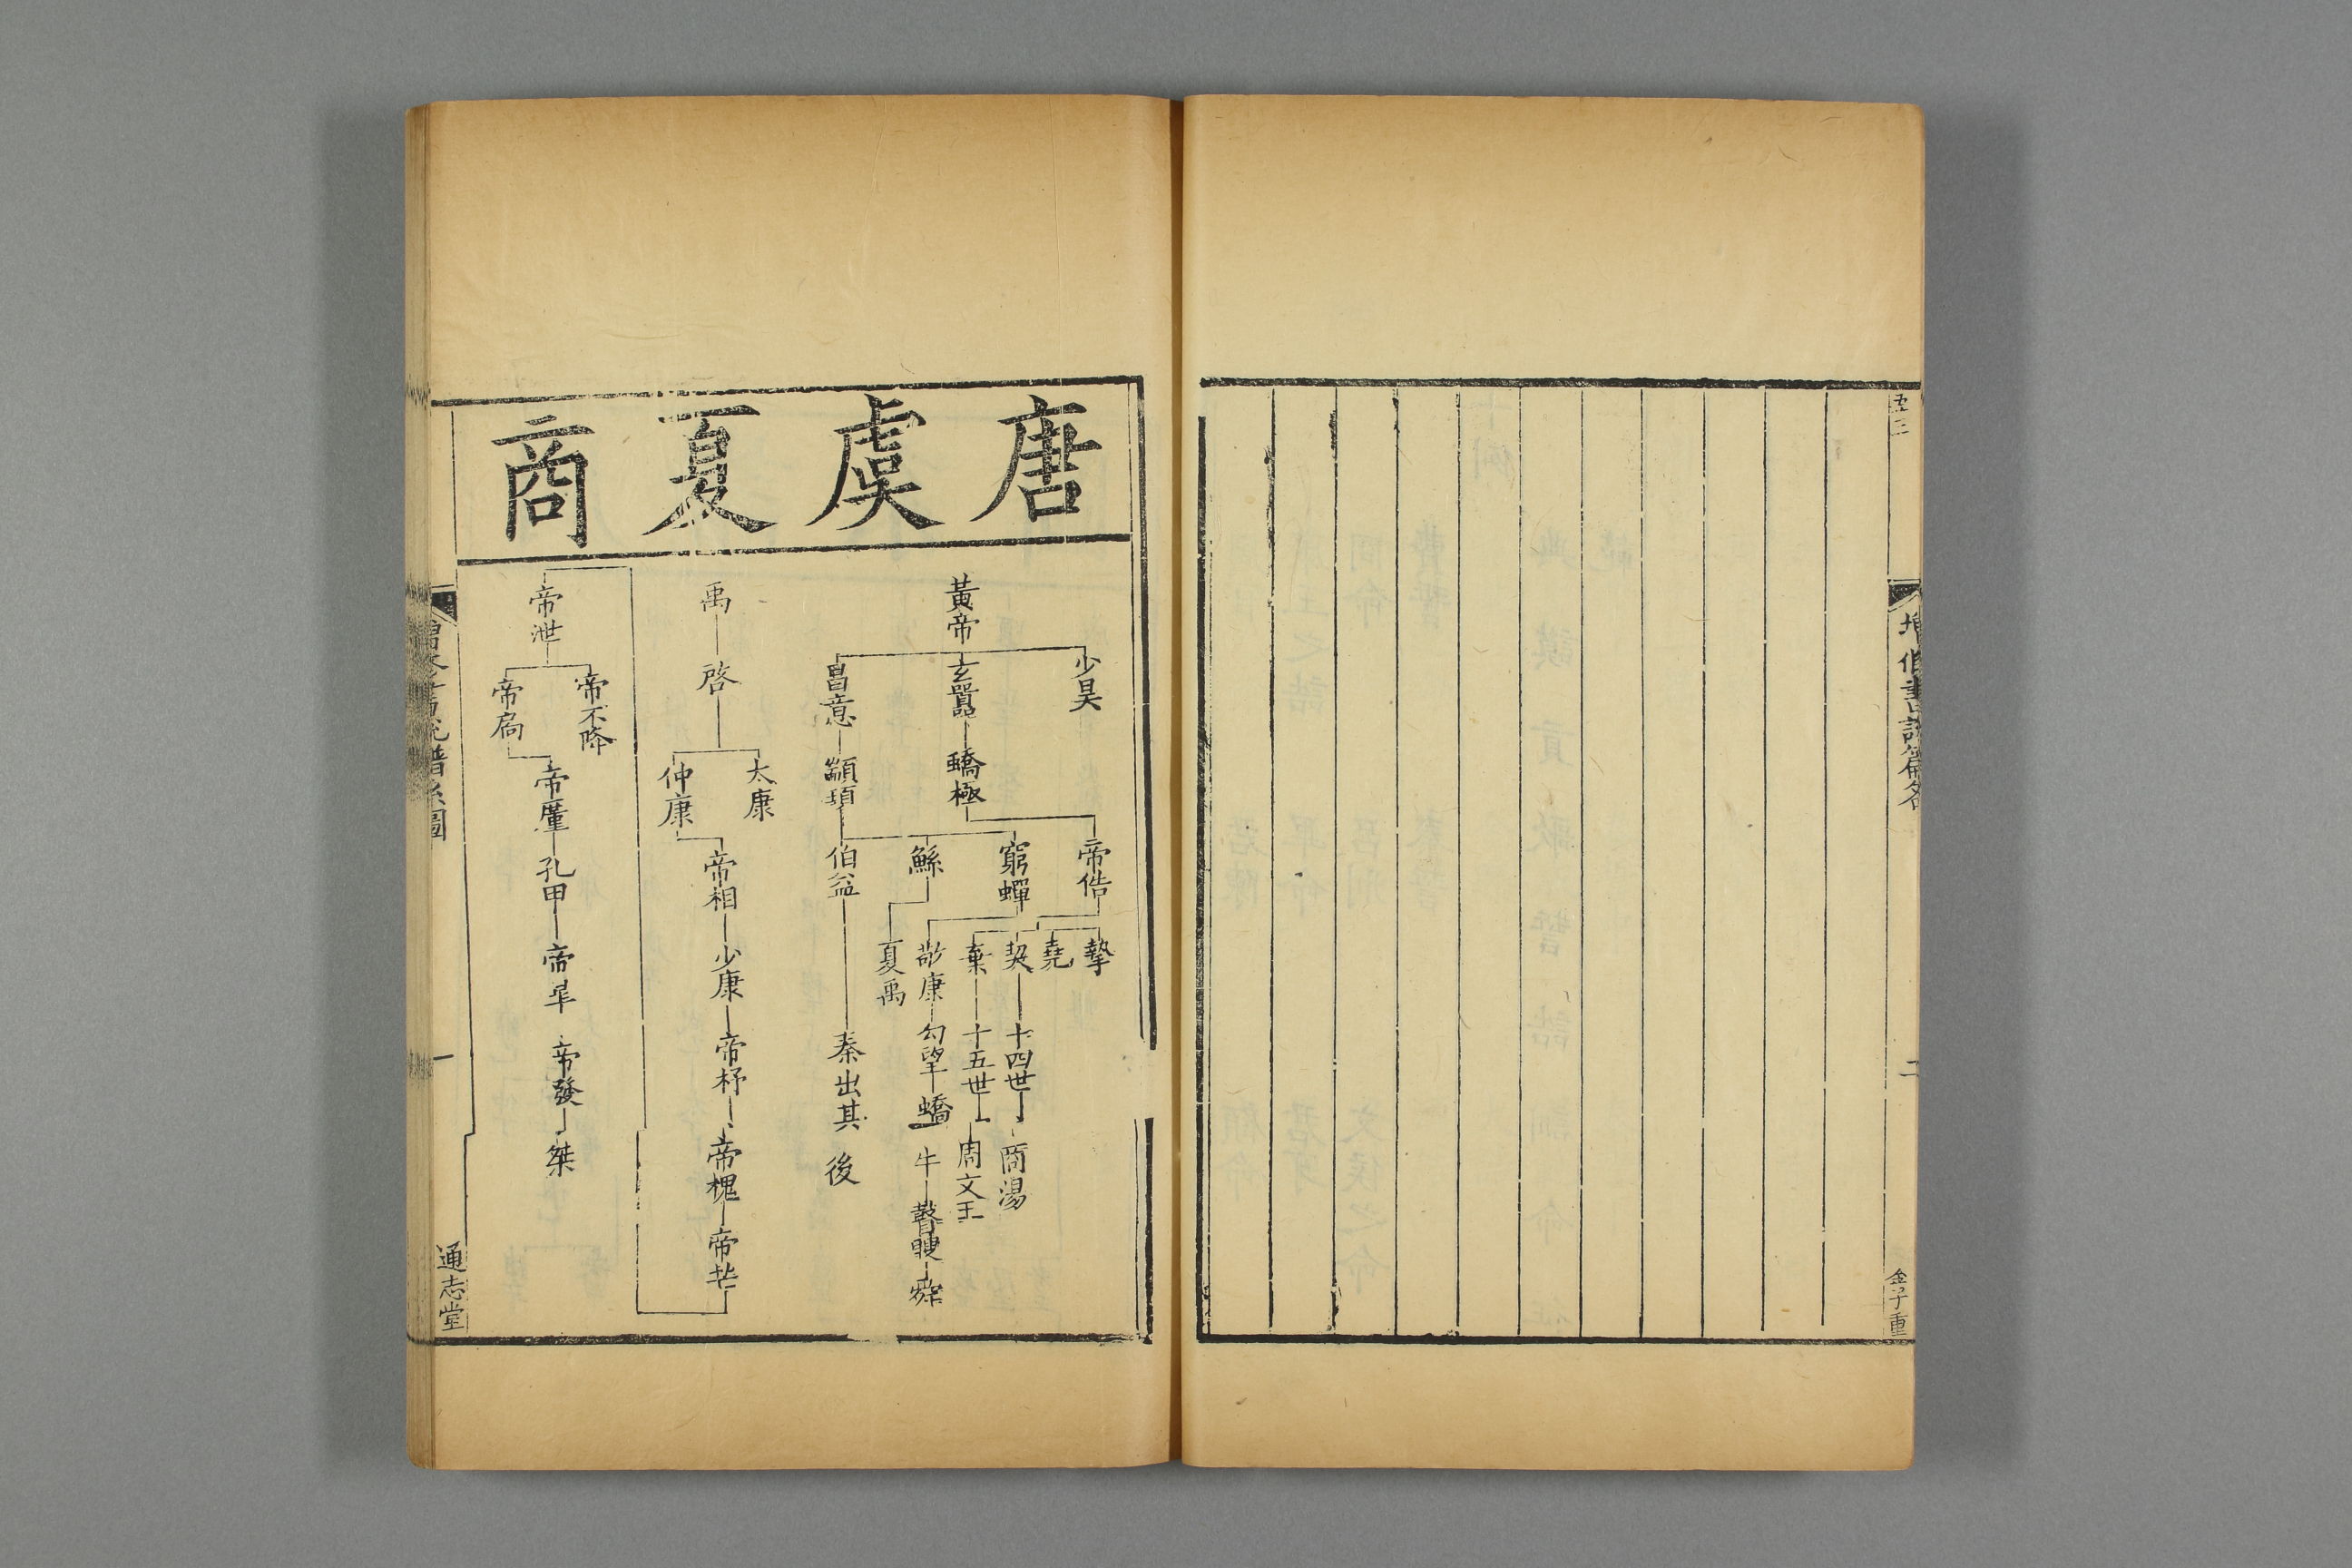 二
金子重
唐虞夏商
黃帝
少昊
玄囂
昌意
蟜極
顓頊
帝俈
窮蟬
鯀
伯益
摯
堯
契
棄
敬康
夏禹
十四世
十五世
勾望
秦出其後
商湯
周文王
蟜牛
瞽瞍
舜
禹
啓
太康
仲康
帝相
少康
帝杼
帝槐
帝芒
帝泄
帝不降
帝扃
帝廑
孔甲
帝皋
帝發
桀
一
通志堂